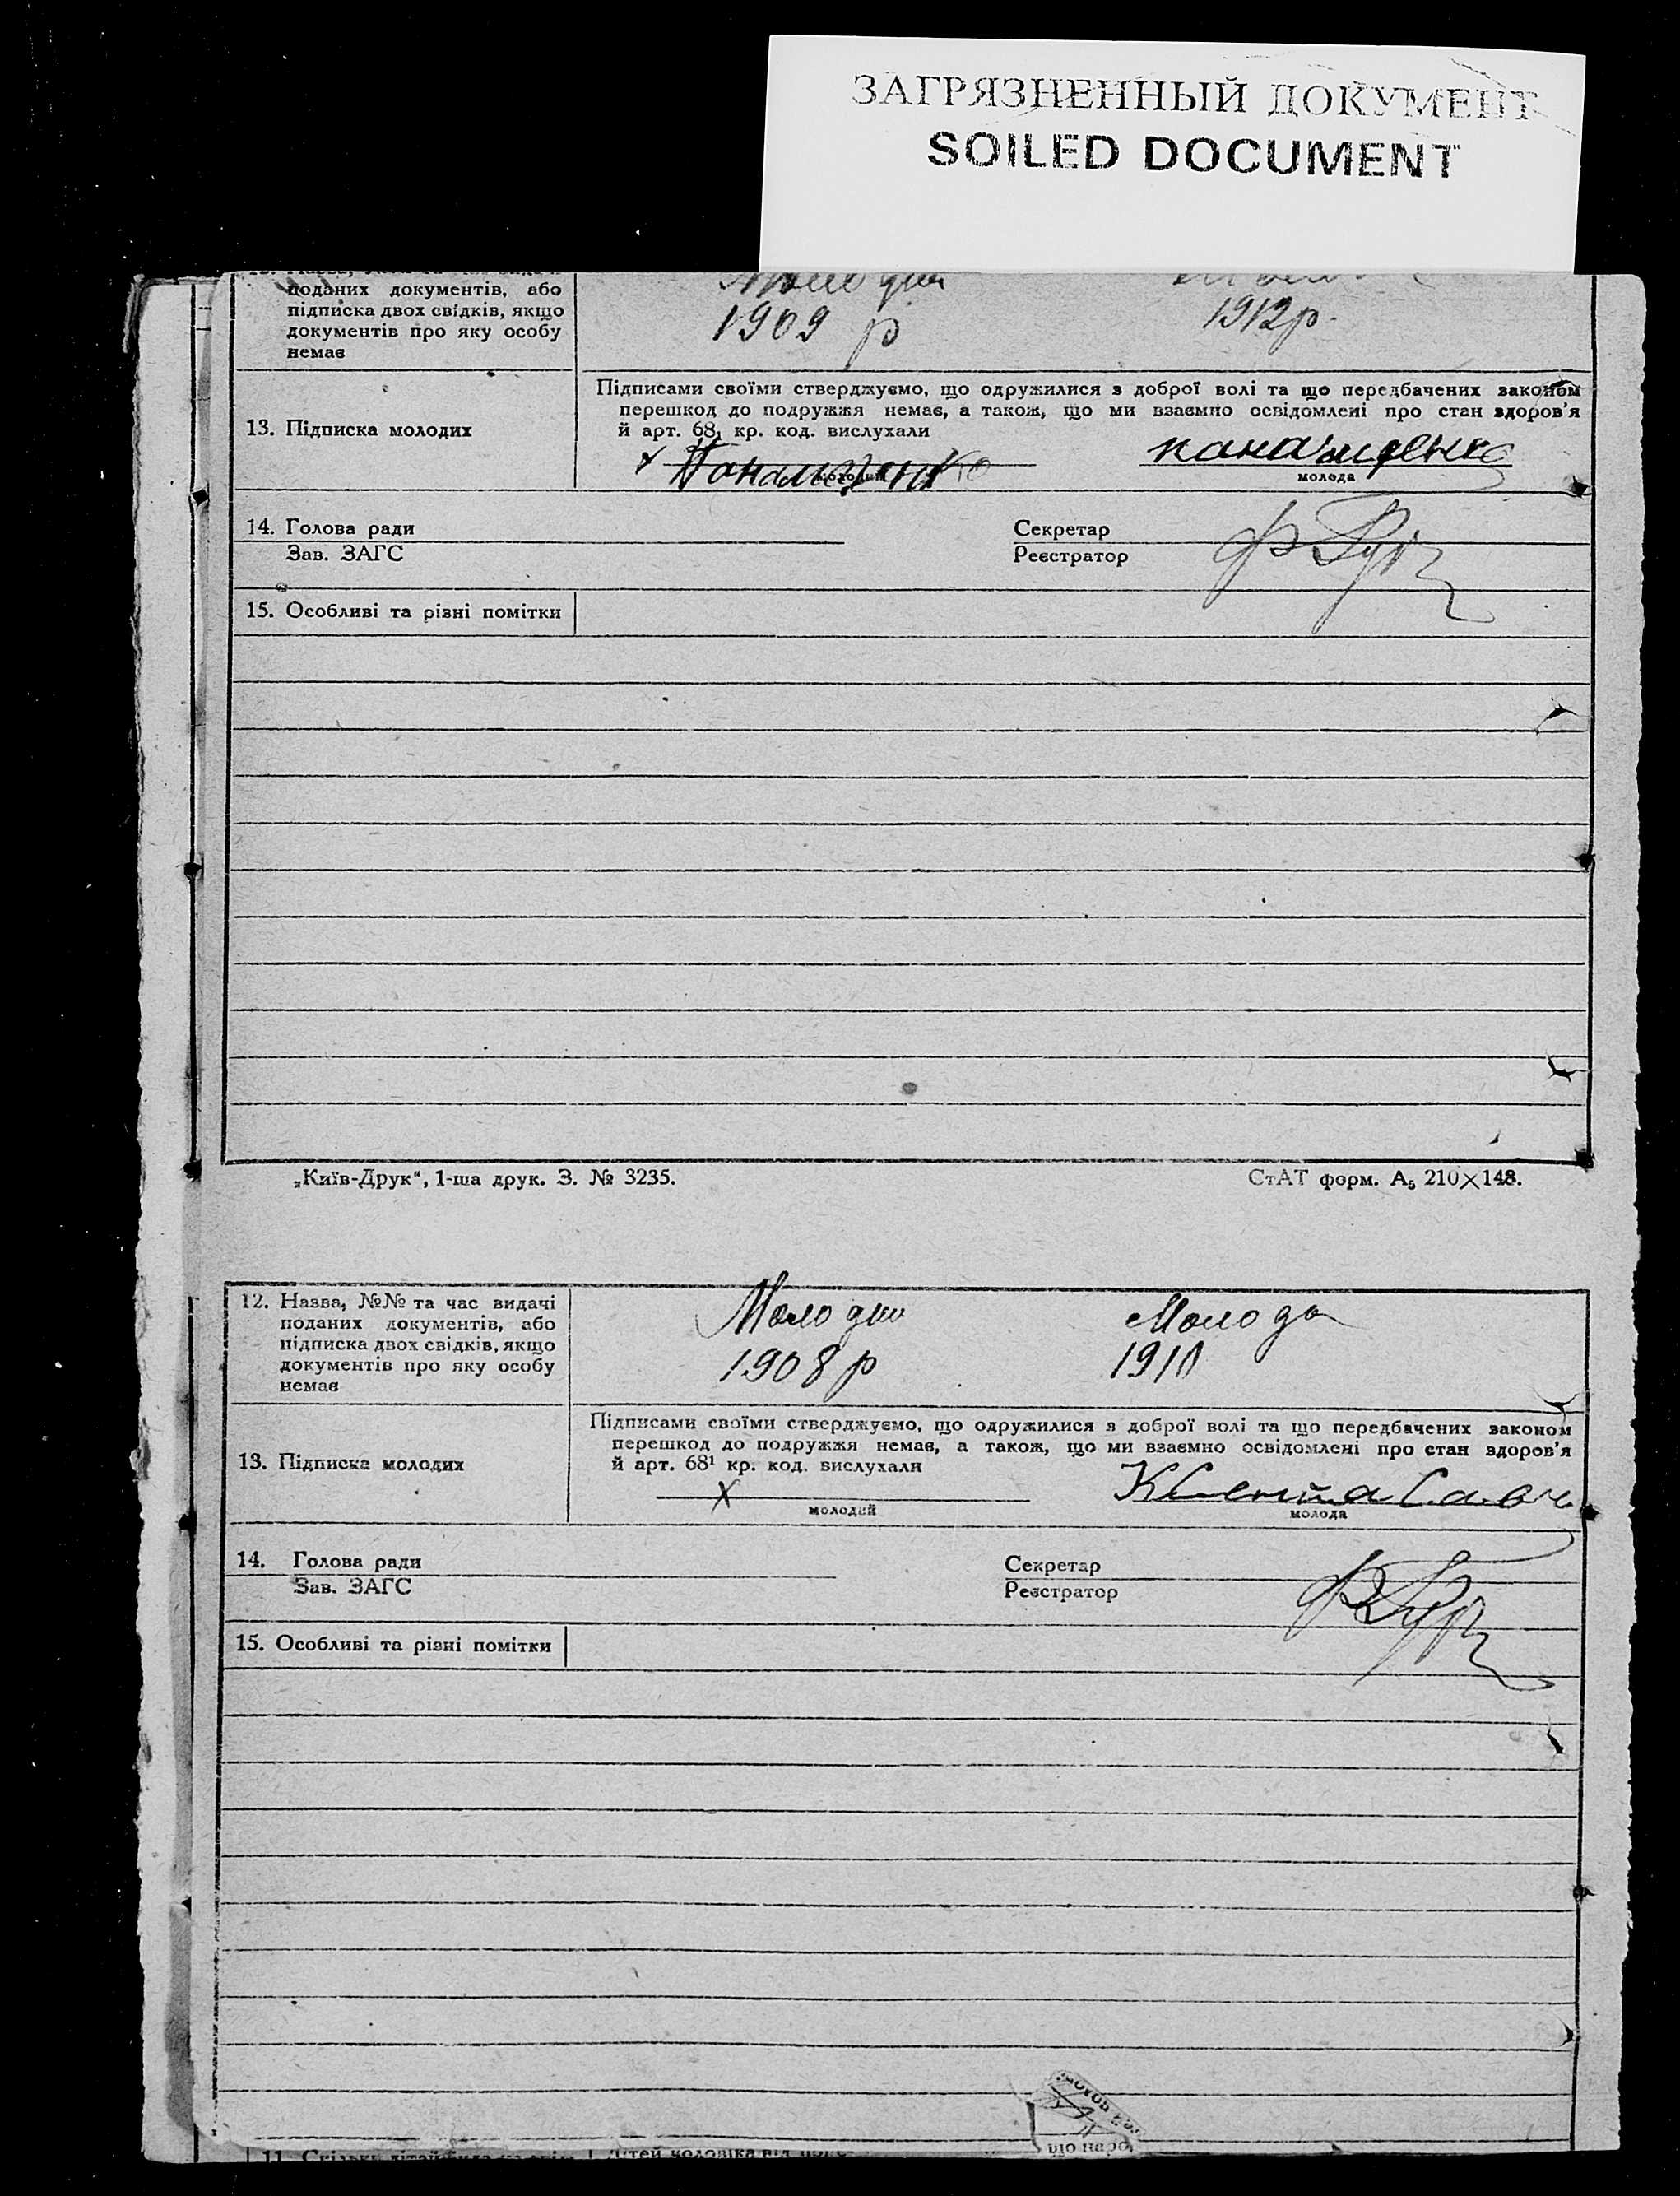 ЗАГРЯЗНЕННЫЙ ДОКУМЕНТ
SOILED DOCUMENT
поданих документів, або
підписка двох свідків, якщо
документів про яку особу
немає
1909 р
1912 р.
13. Підписка молодих
Підписами своїми стверджуємо, що одружилися з доброї волі та що передбачених законом
перешкод до подружжя немає, а також, що ми взаємно освідомлені про стан здоров'я
й арт. 68¹ кр. код. вислухали
молода
14. Голова ради
Зав. ЗАГС
Секретар
Реєстратор
15. Особливі та різні помітки
„Київ-Друк“, 1-ша друк. З. № 3235.
СтАТ форм. А₅ 210×148.
12. Назва, №№ та час видачі
поданих документів, або
підписка двох свідків, якщо
документів про яку особу
немає
Молодий
1908 р
Молода
1910
13. Підписка молодих
Підписами своїми стверджуємо, що одружилися з доброї волі та що передбачених законом
перешкод до подружжя немає, а також, що ми взаємно освідомлені про стан здоров'я
й арт. 68¹ кр. код. вислухали
X
молодий
молода
14. Голова ради
Зав. ЗАГС
Секретар
Реєстратор
15. Особливі та різні помітки